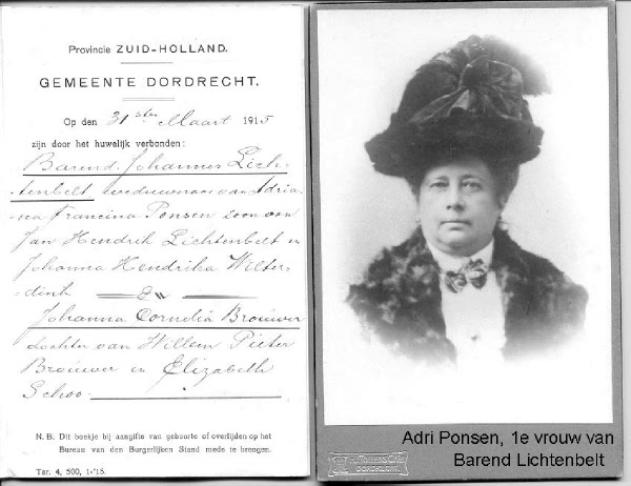 Provincie ZUID-HOLLAND.
GEMEENTE DORDRECHT.
Op den 31ste Maart 1915
zijn door het huwelijk verbonden:
Barend Johannes Lich-
tenbelt weduwnaar van Adria-
na Francina Ponsen zoon van
Jan Hendrik Lichtenbelt en
Johanna Hendrika Wilter-
dink
En
Johanna Cornelia Brouwer
dochter van Willem Pieter
Brouwer en Elizabeth
Schoo.
N.B. Dit boekje bij aangifte van geboorte of overlijden op het
Bureau van den Burgerlijken Stand mede te brengen.
Tar. 4, 500, 1-'15.
Adri Ponsen, 1e vrouw van
Barend Lichtenbelt
DORDRECHT.